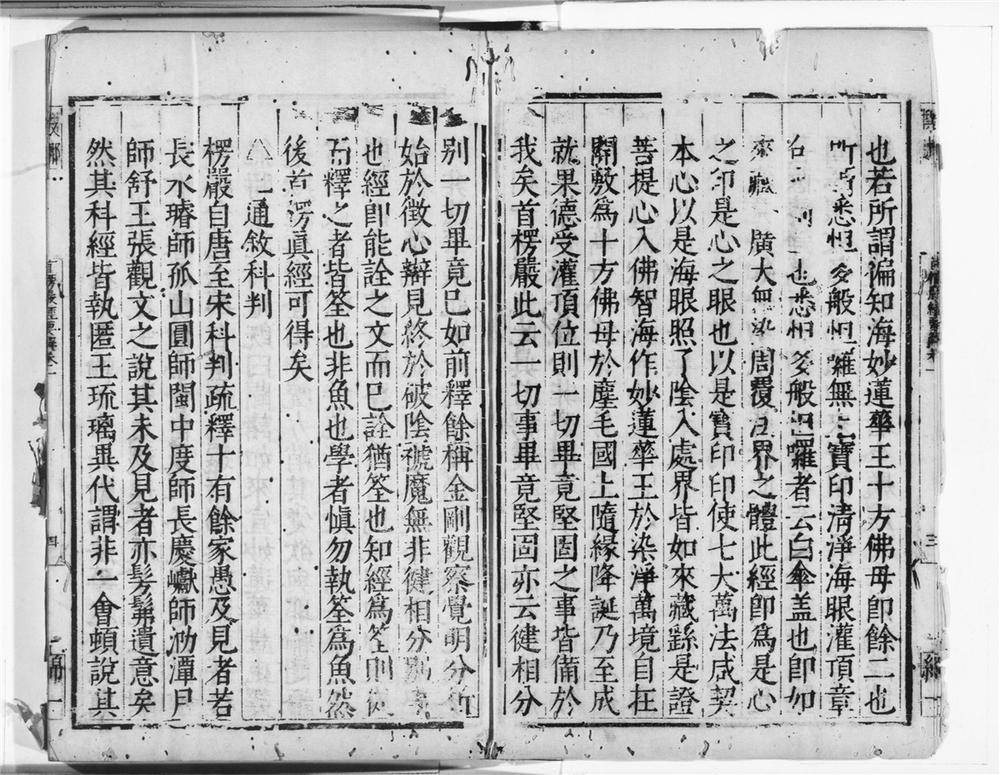 也若所謂徧知海妙蓮華王十方佛母即餘二也
所 悉怛多般怛囉無上寶印清淨海眼灌頂章
也悉怛多般怛囉者云白傘盖也即如
來藏 廣大無染周覆法界之體此經即爲是心
之印是心之眼也以是寶印印使七大萬法咸契
本心以是海眼照了陰入處界皆如來藏繇是證
菩提心入佛智海作妙蓮華王於染淨萬境自在
開敷爲十方佛母於塵毛國土隨緣降誕乃至成
就果德受灌頂位則一切畢竟堅固之事皆備於
我矣首楞嚴此云一切事畢竟堅固亦云健相分
三
別一切畢竟已如前釋餘稱金剛觀察覺明分析
始於徵心辯見終於破陰褫魔無非健相分別
也經即能詮之文而已詮猶筌也知經爲筌則
而釋之者皆筌也非魚也學者愼勿執筌爲魚然
後首楞眞經可得矣
△二通敘科判
楞嚴自唐至宋科判疏釋十有餘家愚及見者若
長水璿師孤山圓師閩中度師長慶巘師泐潭月
師舒王張觀文之說其未及見者亦髣髴遺意矣
然其科經皆執匿王琉璃異代謂非一會頓說其
四